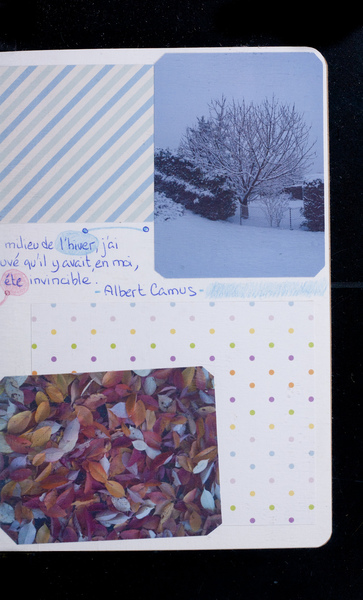 milieu de l'hiver, j'ai
uvé qu'il y avait, en moi,
été invincible.
- Albert Camus -